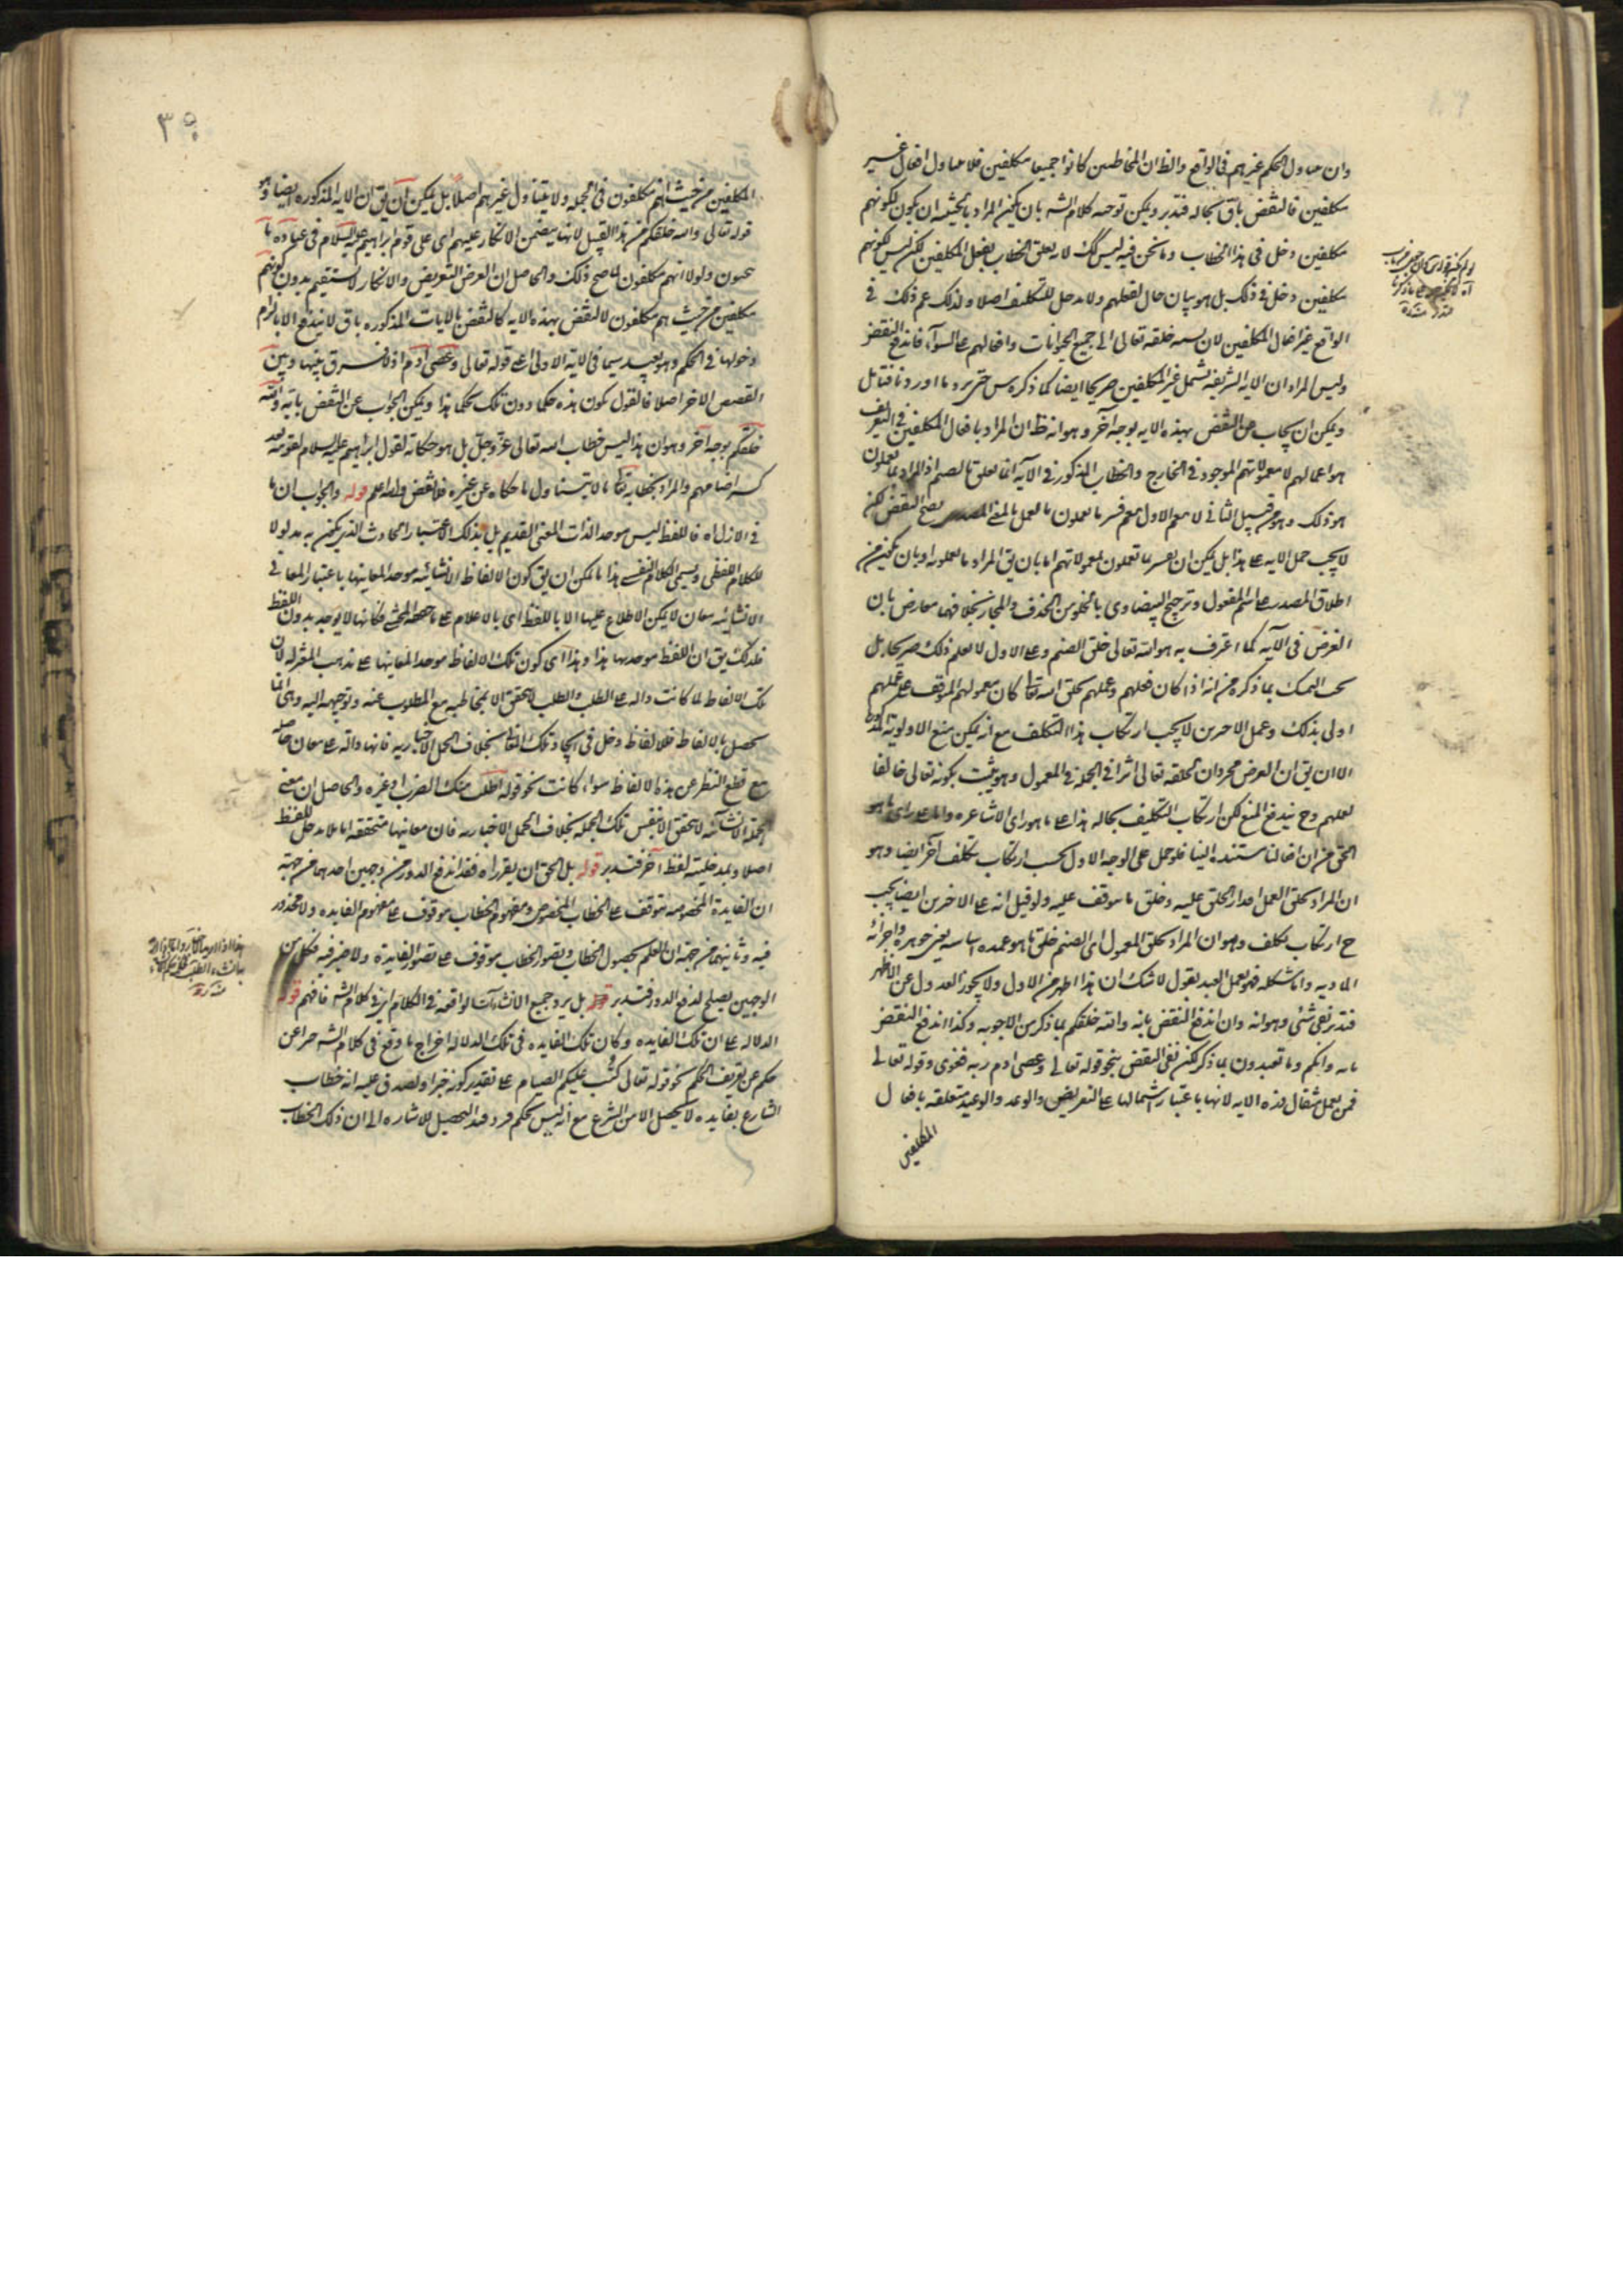 وان تناول الحكم غيرهم فى الواقع والظ ان المخاطبين كانوا جميعا مكلفين فلا يتناول افعال غير
مكلفين فالنقض باق بحاله فتدبر ويمكن توجيه كلام الشه بان يكون المراد بالحيثية ان يكون لكونهم
مكلفين دخل فى هذا الخطاب وما نحن فيه ليس كك لانه يعلق الخطاب بفعل المكلفين لكن ليس لكونهم
مكلفين دخل فى ذلك بل هو بيان حال لفعلهم ولا مدخل للتكليف اصلا ولذلك عم ذلك فى
الواقع غير افعال المكلفين لان نسبة خلقه تعالى الى جميع الحيوانات وافعالهم على السواء فاندفع النقض
وليس المراد ان الاية الشريفة تشمل غير المكلفين صريحا ايضا كما ذكره س حتى يرد ما اوردنا فتامل
ويمكن ان يجاب عن النقض بهذه الاية بوجه آخر وهو انه ظ ان المراد بافعال المكلفين فى التعريف
هو اعمالهم لا معمولاتهم الموجود فى الخارج والخطاب المذكور فى الآية انما تعلق بالصنم اذ المراد بما تعملون
هو ذلك وهو من قبيل الثانى لا الاول نعم لو فسر ما تعملون بالعمل بالمعنى المصدرى يصح النقض لكن
لا يجب حمل الاية على هذا بل يمكن ان يفسر ما تعملون بمعمولاتهم اما بان يق المراد ما تعملونه او بان يكون من
اطلاق المصدر على اسم المفعول وترجيح البيضاوى بالخلو من الحذف والمجاز بخلافهما معارض بان
الغرض فى الآية كما اعترف به هو انه تعالى خلق الصنم وعلى الاول لا يعلم ذلك صريحا بل
بحسب التمسك بما ذكره من انه اذا كان فعلهم وعملهم بخلق الله تعالى كان معمولهم الموقف على عملهم
اولى بذلك وعمل الاخرين لا يجب ارتكاب هذا التكلف مع انه يمكن منع الاولوية
الا ان يق ان الغرض مجرد ان لخلقه تعالى اثرا فى الجملة فى المعمول وهو يثبت بكونه تعالى خالقا
لعملهم وح يندفع المنع لكن ارتكاب التكليف بحاله هذا على ما هو راى الاشاعرة واما على راى ما هو
الحق من ان افعالنا مستندة الينا فلو حمل على الوجه الاول يجب ارتكاب تكلف آخر ايضا وهو
ان المراد بخلق العمل اقدار الخلق عليه وخلق ما يتوقف عليه ولو قيل انه على الاخرين ايضا يجب
ح ارتكاب تكلف وهو ان المراد بخلق المعمول اى الصنم خلق ما هو عمدة اساسه يعنى جوهره واجزائه
المادية واما شكله فهو بعمل العبد نقول لا شك ان هذا اظهر من الاول ولا يجوز العدول عن الاظهر
فتدبر بقى شئ وهو انه وان اندفع النقض بانه والله خلقكم بما ذكر من الاجوبة وكذا اندفع النقض
بانه وانكم وما تعبدون بما ذكر لكن بقى النقض بنحو قوله تعالى وعصى ادم ربه فغوى وقوله تعالى
فمن يعمل مثقال ذرة الاية لانها باعتبار اشتمالها على التعريض والوعد والوعيد متعلقة بافعال
المكلفين
٣٩
المكلفين من حيث انهم مكلفون فى الجملة ولا يتناول غيرهم اصلا بل يمكن ان يق ان الاية المذكورة ايضا وهو
قوله تعالى والله خلقكم من هذا القبيل لانها يتضمن الانكار عليهم اى على قوم ابراهيم عليه السلام فى عبادة ما
ينحتون ولولا انهم مكلفون لما صح ذلك والحاصل ان الغرض التعريض والانكار لا يستقيم بدون كونهم
مكلفين من حيث هم مكلفون لا النقض بهذه الاية كالنقض بالايات المذكورة باق لا يندفع الا بالتزام
دخولها فى الحكم وهو بعيد سيما فى الاية الاولى اى قوله تعالى وعصى آدم اذ لا فرق بينها وبين
القصص الاخر اصلا فالقول بكون هذه حكما دون تلك تحكم هذا ويمكن الجواب عن النقض باية والله
خلقكم بوجه آخر وهو ان هذا ليس خطاب الله تعالى عز وجل بل هو حكاية لقول ابراهيم عليه السلام لقومه بعد
كسر اصنامهم والمراد بخطابه تعالى ما لا يتناول ما حكاه عن غيره فلا نقض والله اعلم قوله والجواب ان ما
فى الازل اه فاللفظ ليس موجدا لذات المعنى القديم بل لذلك الاعتبار الحادث الذى يكون به مدلولا
للكلام اللفظى ويسمى الكلام النفسى هذا ما يمكن ان يق كون الالفاظ الانشائية موجدة لمعانيها باعتبار المعانى
الانشائية معان لا يمكن الاطلاع عليها الا باللفظ اى بالاعلام على ما حققه المحشى فكانها لا يوجد بدون اللفظ
فلذلك يق ان اللفظ موجد لها هذا وهذا اى كون تلك الالفاظ موجدة لمعانيها على مذهب المعتزلة لان
تلك الالفاظ لما كانت دالة على الطلب والطلب لا يتحقق الا بمخاطبة مع المطلوب عنه وتوجيهه اليه وهى انما
يحصل بالالفاظ فللالفاظ دخل فى ايجاد تلك المعانى بخلاف الجمل الاخبارية فانها دالة على معان حاصلة
مع قطع النظر عن هذه الالفاظ سواء كانت نحو قوله اطلب منك الضرب او غيره والحاصل ان معنى
الجملة الانشائية لا يتحقق الا بنفس تلك الجملة بخلاف الجمل الاخبارية فان معانيها متحققة اما بلا مدخل للفظ
اصلا وبمدخلية لفظ آخر فتدبر قوله بل الحق ان يقرر اه فقد اندفع الدور من وجهين احدهما من جهة
ان الفايدة المخصوصة متوقف على الخطاب المخصوص ومفهوم الخطاب موقوف على مفهوم الفايدة ولا محذور
فيه وثانيهما من جهة ان العلم بحصول الخطاب وتصور الخطاب موقوف على تصور الفايدة ولا ضير فيه فكل من
الوجهين يصلح لدفع الدور فتدبر قوله بل يرد جميع الانشاءات الواقعة فى الكلام اى فى كلام الشه فافهم قوله
الدلالة على ان تلك الفايدة وكان تلك الفايدة فى تلك الدلالة اخراج ما وقع فى كلام الشه جزاء عن
حكم عن تعريف الحكم نحو قوله تعالى كتب عليكم الصيام على تقدير كونه خبرا ولصدق عليه انه خطاب
الشارع بفايدة لا يحصل الا من الشرع مع انه ليس بحكم فرد وقد التحصيل للاشارة الى ان ذلك الخطاب